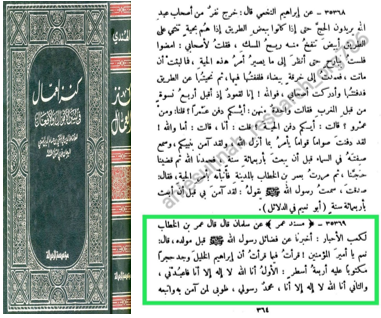 كنز العمال
٣٥٣٦٨ – عن إبراهيم النخعي قال: خرج نفر من أصحاب عبد
الله يريدون الحج حتى إذا كانوا ببعض الطريق إذا هم بحية تثنى على
الطريق أبيض تنفح منه ريح المسك، فقلت لأصحابي: امضوا
فلست ببارح حتى أنظر إلى ما يصير أمر هذه الحية، فما لبثت أن
ماتت، فعمدت إلى خرقة بيضاء فلففتها فيها، ثم نحيتها عن الطريق
فدفنتها وأدركت أصحابي، فوالله! إنا لقعود إذ أقبل أربع نسوة
من قبل المغرب فقالت واحدة منهن: أيكم دفن عمرا؟ قلنا: ومن
عمرو؟ قالت: أيكم دفن الحية؟ قلت: أنا، قالت: أما والله!
لقد دفنت صواما قواما يأمر بما أنزل الله، ولقد آمن بنبيكم وسمع
صفته في السماء قبل أن يبعث بأربعمائة سنة، فحمدنا الله ثم قضينا
حجنا، ثم مررت بعمر بن الخطاب بالمدينة فأنبأته بأمر الحية، فقال:
صدقت، سمعت رسول الله ﷺ يقول: لقد آمن بي قبل أن أبعث
بأربعمائة سنة (أبو نعيم في الدلائل).
٣٥٣٦٩ – ﴿ مسند عمر ﴾ عن سلمان قال قال عمر بن الخطاب
لكعب الأحبار: أخبرنا عن فضائل رسول الله ﷺ قبل مولده، قال:
نعم يا أمير المؤمنين! قرأت فيما قرأت أن إبراهيم الخليل وجد حجرا
مكتوبا عليه أربعة أسطر: الأول أنا الله لا إله إلا أنا فاعبدني،
والثاني أنا الله لا إله إلا أنا، محمد رسولي، طوبى لمن آمن به واتبعه
٣٦٤